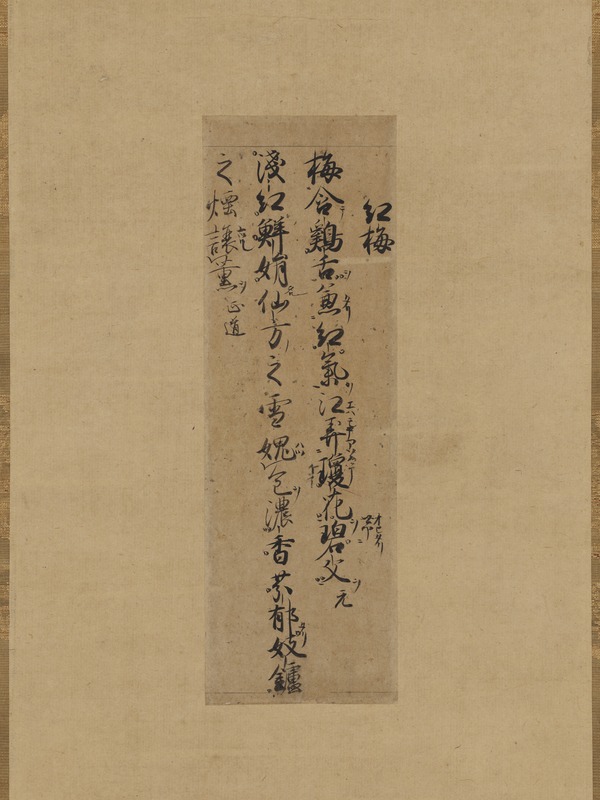 紅梅
梅含鷄舌兼紅氣江弄瓊花碧文元
淺紅鮮娟仙方之雪媿色濃香芬郁妓鑪
之煙讓薫正道